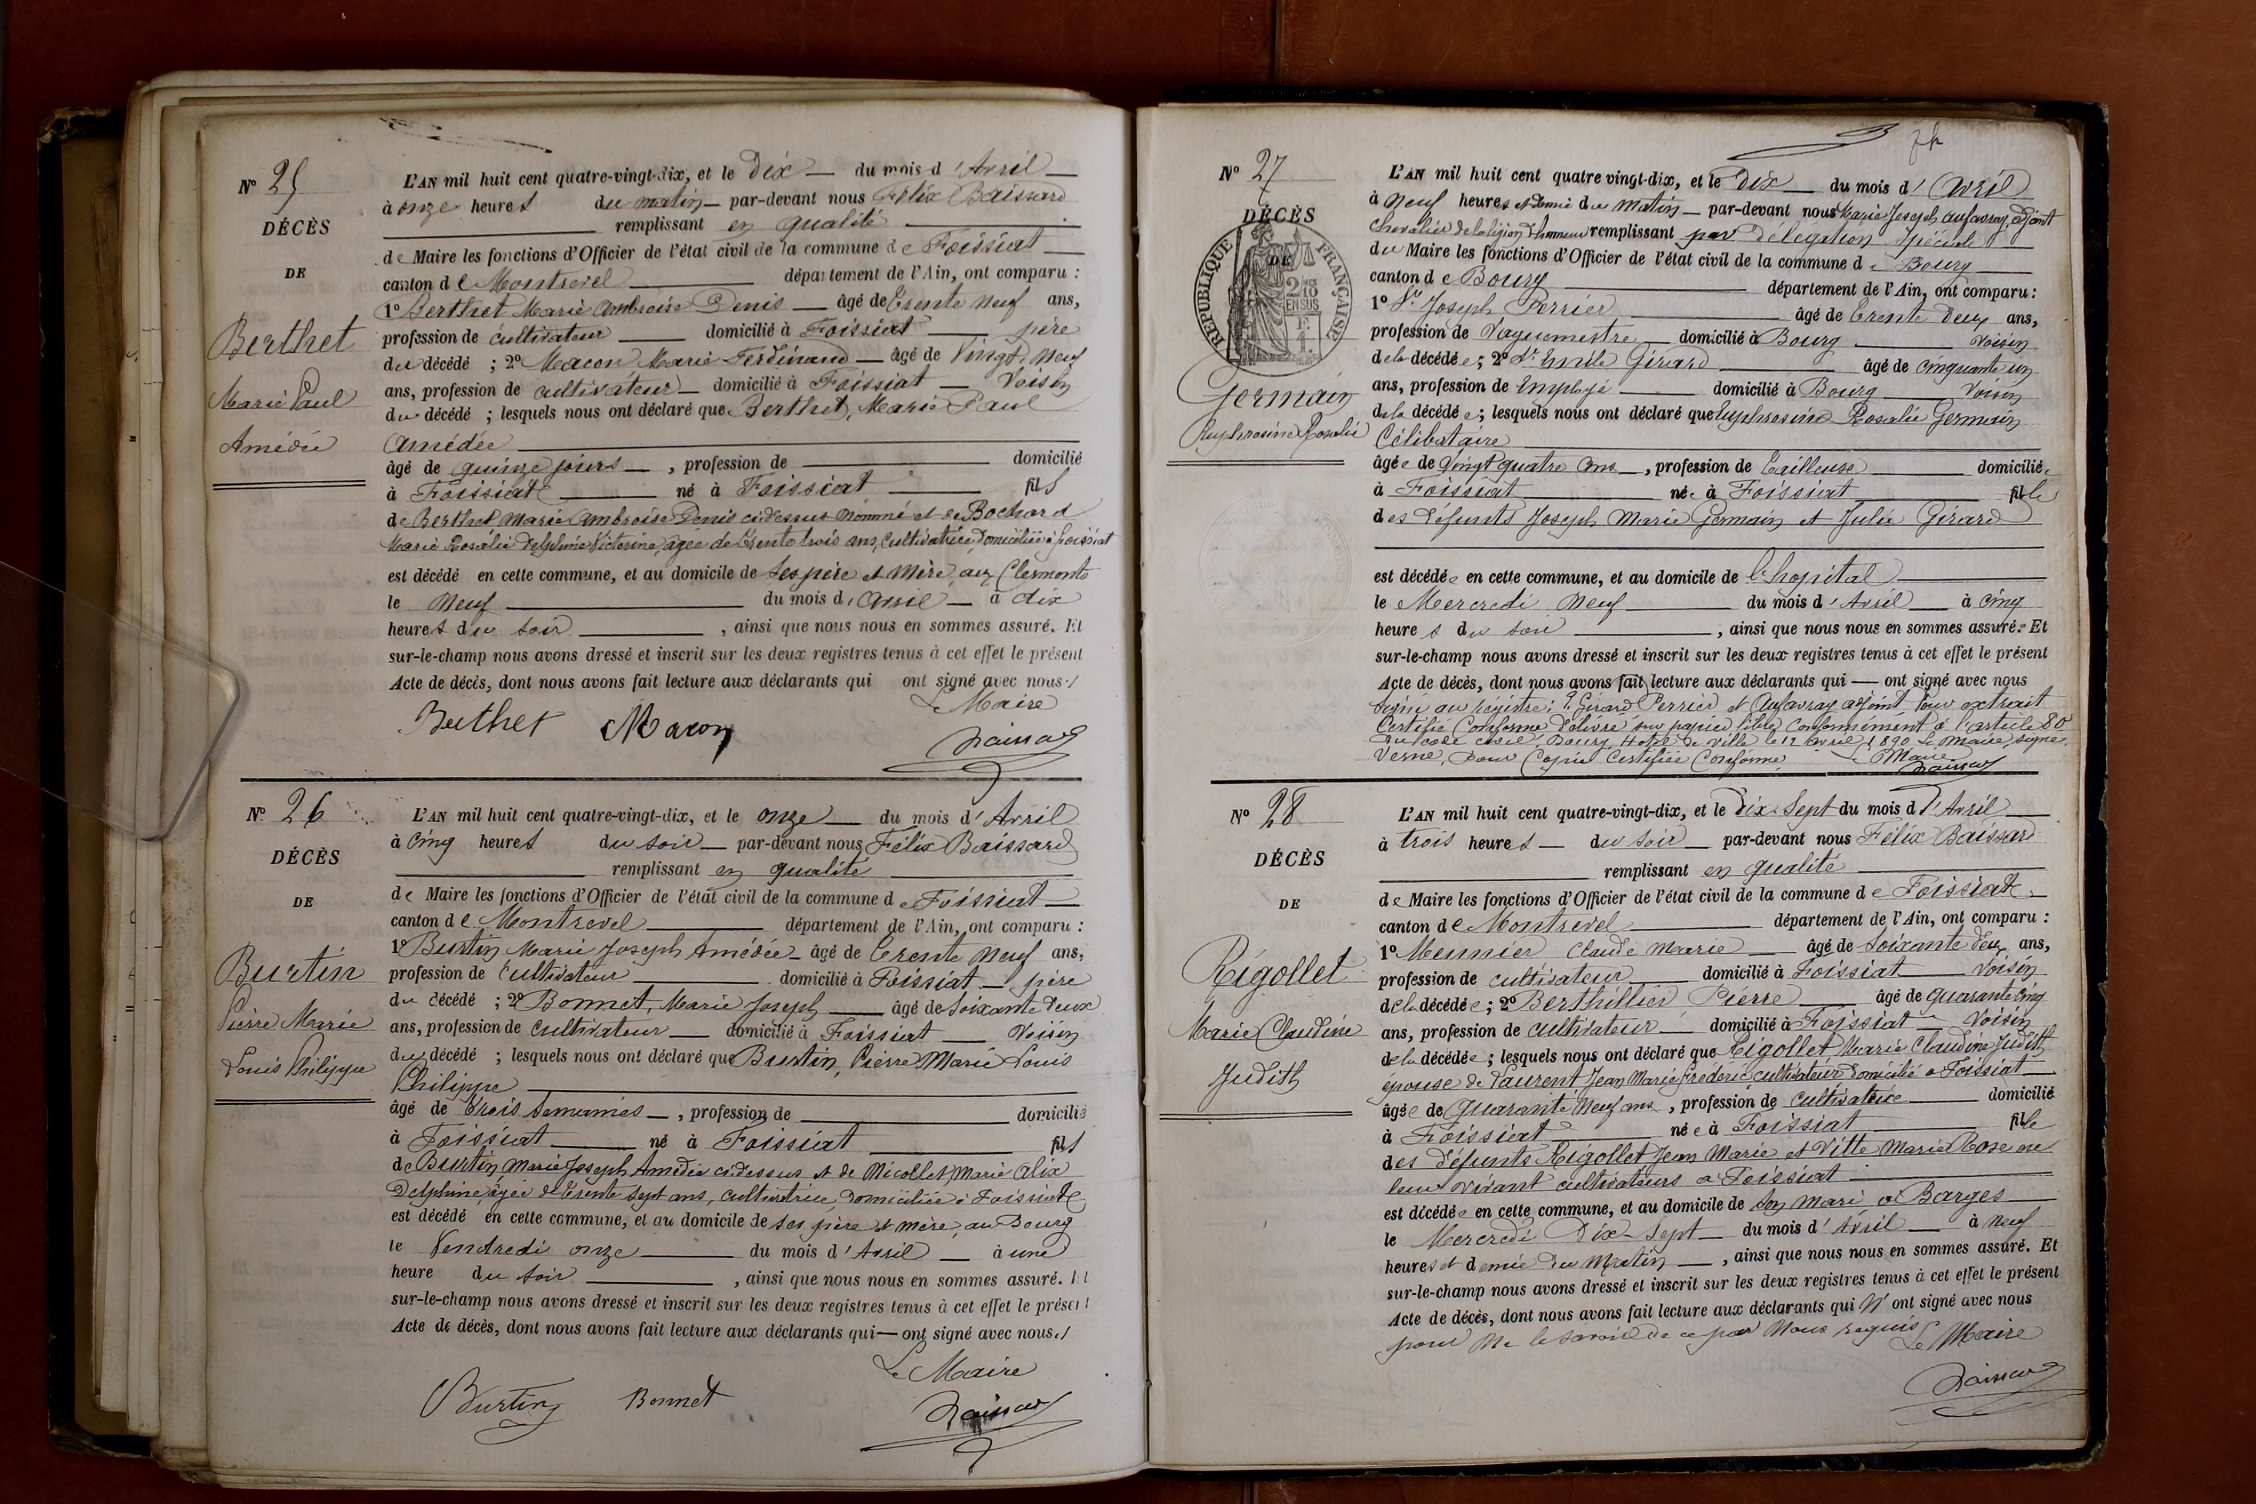 N° 25
DÉCÈS
DE
Berthet
Marie Paul
Amédée
L'AN mil huit cent quatre-vingt-dix, et le Dix du mois d'Avril
à onze heures du matin par-devant nous Félix Baissard
remplissant en qualité
de Maire les fonctions d'Officier de l'état civil de la commune de Foissiat
canton de Montrevel département de l'Ain, ont comparu :
1° Berthet Marie Ambroise Denis âgé de Trente neuf ans,
profession de cultivateur domicilié à Foissiat père
du décédé ; 2° Macon Marie Ferdinand âgé de Vingt neuf
ans, profession de cultivateur domicilié à Foissiat Voisin
du décédé ; lesquels nous ont déclaré que Berthet, Marie Paul
Amédée
âgé de quinze jours , profession de domicilié
à Foissiat né à Foissiat fils
de Berthet Marie Ambroise Denis ci dessus nommé et de Bochard
Marie Rosalie Delphine Victorine, agée de trente trois ans, Cultivatrice, domiciliée à foissiat
est décédé en cette commune, et au domicile de Ses père et Mère, aux Clermonts
le Neuf du mois d'Avril à dix
heures du soir , ainsi que nous nous en sommes assuré. Et
sur-le-champ nous avons dressé et inscrit sur les deux registres tenus à cet effet le présent
Acte de décès, dont nous avons fait lecture aux déclarants qui ont signé avec nous.
Le Maire
Berthet Macon Baissard
N° 26
DÉCÈS
DE
Burtin
Pierre Marie
Louis Philippe
L'AN mil huit cent quatre-vingt-dix, et le onze du mois d'Avril
à cinq heures du soir par-devant nous Félix Baissard
remplissant en qualité
de Maire les fonctions d'Officier de l'état civil de la commune de Foissiat
canton de Montrevel département de l'Ain, ont comparu :
1° Burtin Marie Joseph Amédée âgé de Trente Neuf ans,
profession de Cultivateur domicilié à Foissiat père
du décédé ; 2° Bonnet, Marie Joseph âgé de Soixante deux
ans, profession de Cultivateur domicilié à Foissiat Voisin
du décédé ; lesquels nous ont déclaré que Burtin, Pierre Marie Louis
Philippe
âgé de trois semaines , profession de domicilié
à Foissiat né à Foissiat fils
de Burtin Marie Joseph Amédée ci dessus et de Nicollet, Marie Alix
Delphine, agée de trente sept ans, cultivatrice, domiciliée à Foissiat
est décédé en cette commune, et au domicile de ses père et mère, au Bourg
le Vendredi onze du mois d'Avril à une
heure du soir , ainsi que nous nous en sommes assuré. Et
sur-le-champ nous avons dressé et inscrit sur les deux registres tenus à cet effet le présent
Acte de décès, dont nous avons fait lecture aux déclarants qui ont signé avec nous.
Le Maire
Burtin Bonnet Baissard
N° 27
DÉCÈS
DE
RÉPUBLIQUE FRANÇAISE
2/10
EN SUS
Germain
Euphrosine Rosalie
L'AN mil huit cent quatre vingt-dix, et le Dix du mois d'Avril
à Neuf heures et demie du Matin par-devant nous Marie Joseph Aufavray, adjoint
Chevalier de la légion d'honneur remplissant par délégation Spéciale
du Maire les fonctions d'Officier de l'état civil de la commune de Bourg
canton de Bourg département de l'Ain, ont comparu :
1° Sr Joseph Perrier âgé de trente deux ans,
profession de Vaguemestre domicilié à Bourg Voisin
de la décédée ; 2° Sr Emile Girard âgé de cinquante un
ans, profession de Employé domicilié à Bourg Voisin
de la décédée ; lesquels nous ont déclaré que Euphrosine Rosalie Germain
Célibataire
âgée de Vingt quatre ans , profession de Tailleuse domiciliée
à Foissiat née à Foissiat fille
des défunts Joseph Marie Germain et Julie Girard
est décédée en cette commune, et au domicile de l'hopital
le Mercredi Neuf du mois d'Avril à cinq
heures du soir , ainsi que nous nous en sommes assuré. Et
sur-le-champ nous avons dressé et inscrit sur les deux registres tenus à cet effet le présent
Acte de décès, dont nous avons fait lecture aux déclarants qui ont signé avec nous
Signé au registre : Girard Perrier et Aufavray adjoint Pour extrait
Certifié Conforme Délivré sur papier libre Conformément à l'article 80
du code civil, Bourg Hotel de Ville le 12 avril 1890 le Maire, signé
Verne, pour Copie Certifiée Conforme
Le Maire
Baissard
N° 28
DÉCÈS
DE
Rigollet
Marie Claudine
Judith
L'AN mil huit cent quatre-vingt-dix, et le Dix Sept du mois d'Avril
à trois heures du soir par-devant nous Félix Baissard
remplissant en qualité
de Maire les fonctions d'Officier de l'état civil de la commune de Foissiat
canton de Montrevel département de l'Ain, ont comparu :
1° Meunier Claude Marie âgé de Soixante deux ans,
profession de cultivateur domicilié à Foissiat Voisin
de la décédée ; 2° Berthillier Pierre âgé de quarante cinq
ans, profession de cultivateur domicilié à Foissiat Voisin
de la décédée ; lesquels nous ont déclaré que Rigollet Marie Claudine Judith
épouse de Laurent Jean Marie Frédéric cultivateur domicilié à Foissiat
âgée de quarante Neuf ans , profession de Cultivatrice domicilié
à Foissiat née à Foissiat fille
des défunts Rigollet Jean Marie et Vitte Marie Rose en
leur vivant cultivateurs à Foissiat
est décédée en cette commune, et au domicile de Son Mari à Barges
le Mercredi Dix Sept du mois d'Avril à neuf
heures et demie du Matin , ainsi que nous nous en sommes assuré. Et
sur-le-champ nous avons dressé et inscrit sur les deux registres tenus à cet effet le présent
Acte de décès, dont nous avons fait lecture aux déclarants qui N'ont signé avec nous
pour Ne le Savoir de ce par Nous requis Le Maire
Baissard